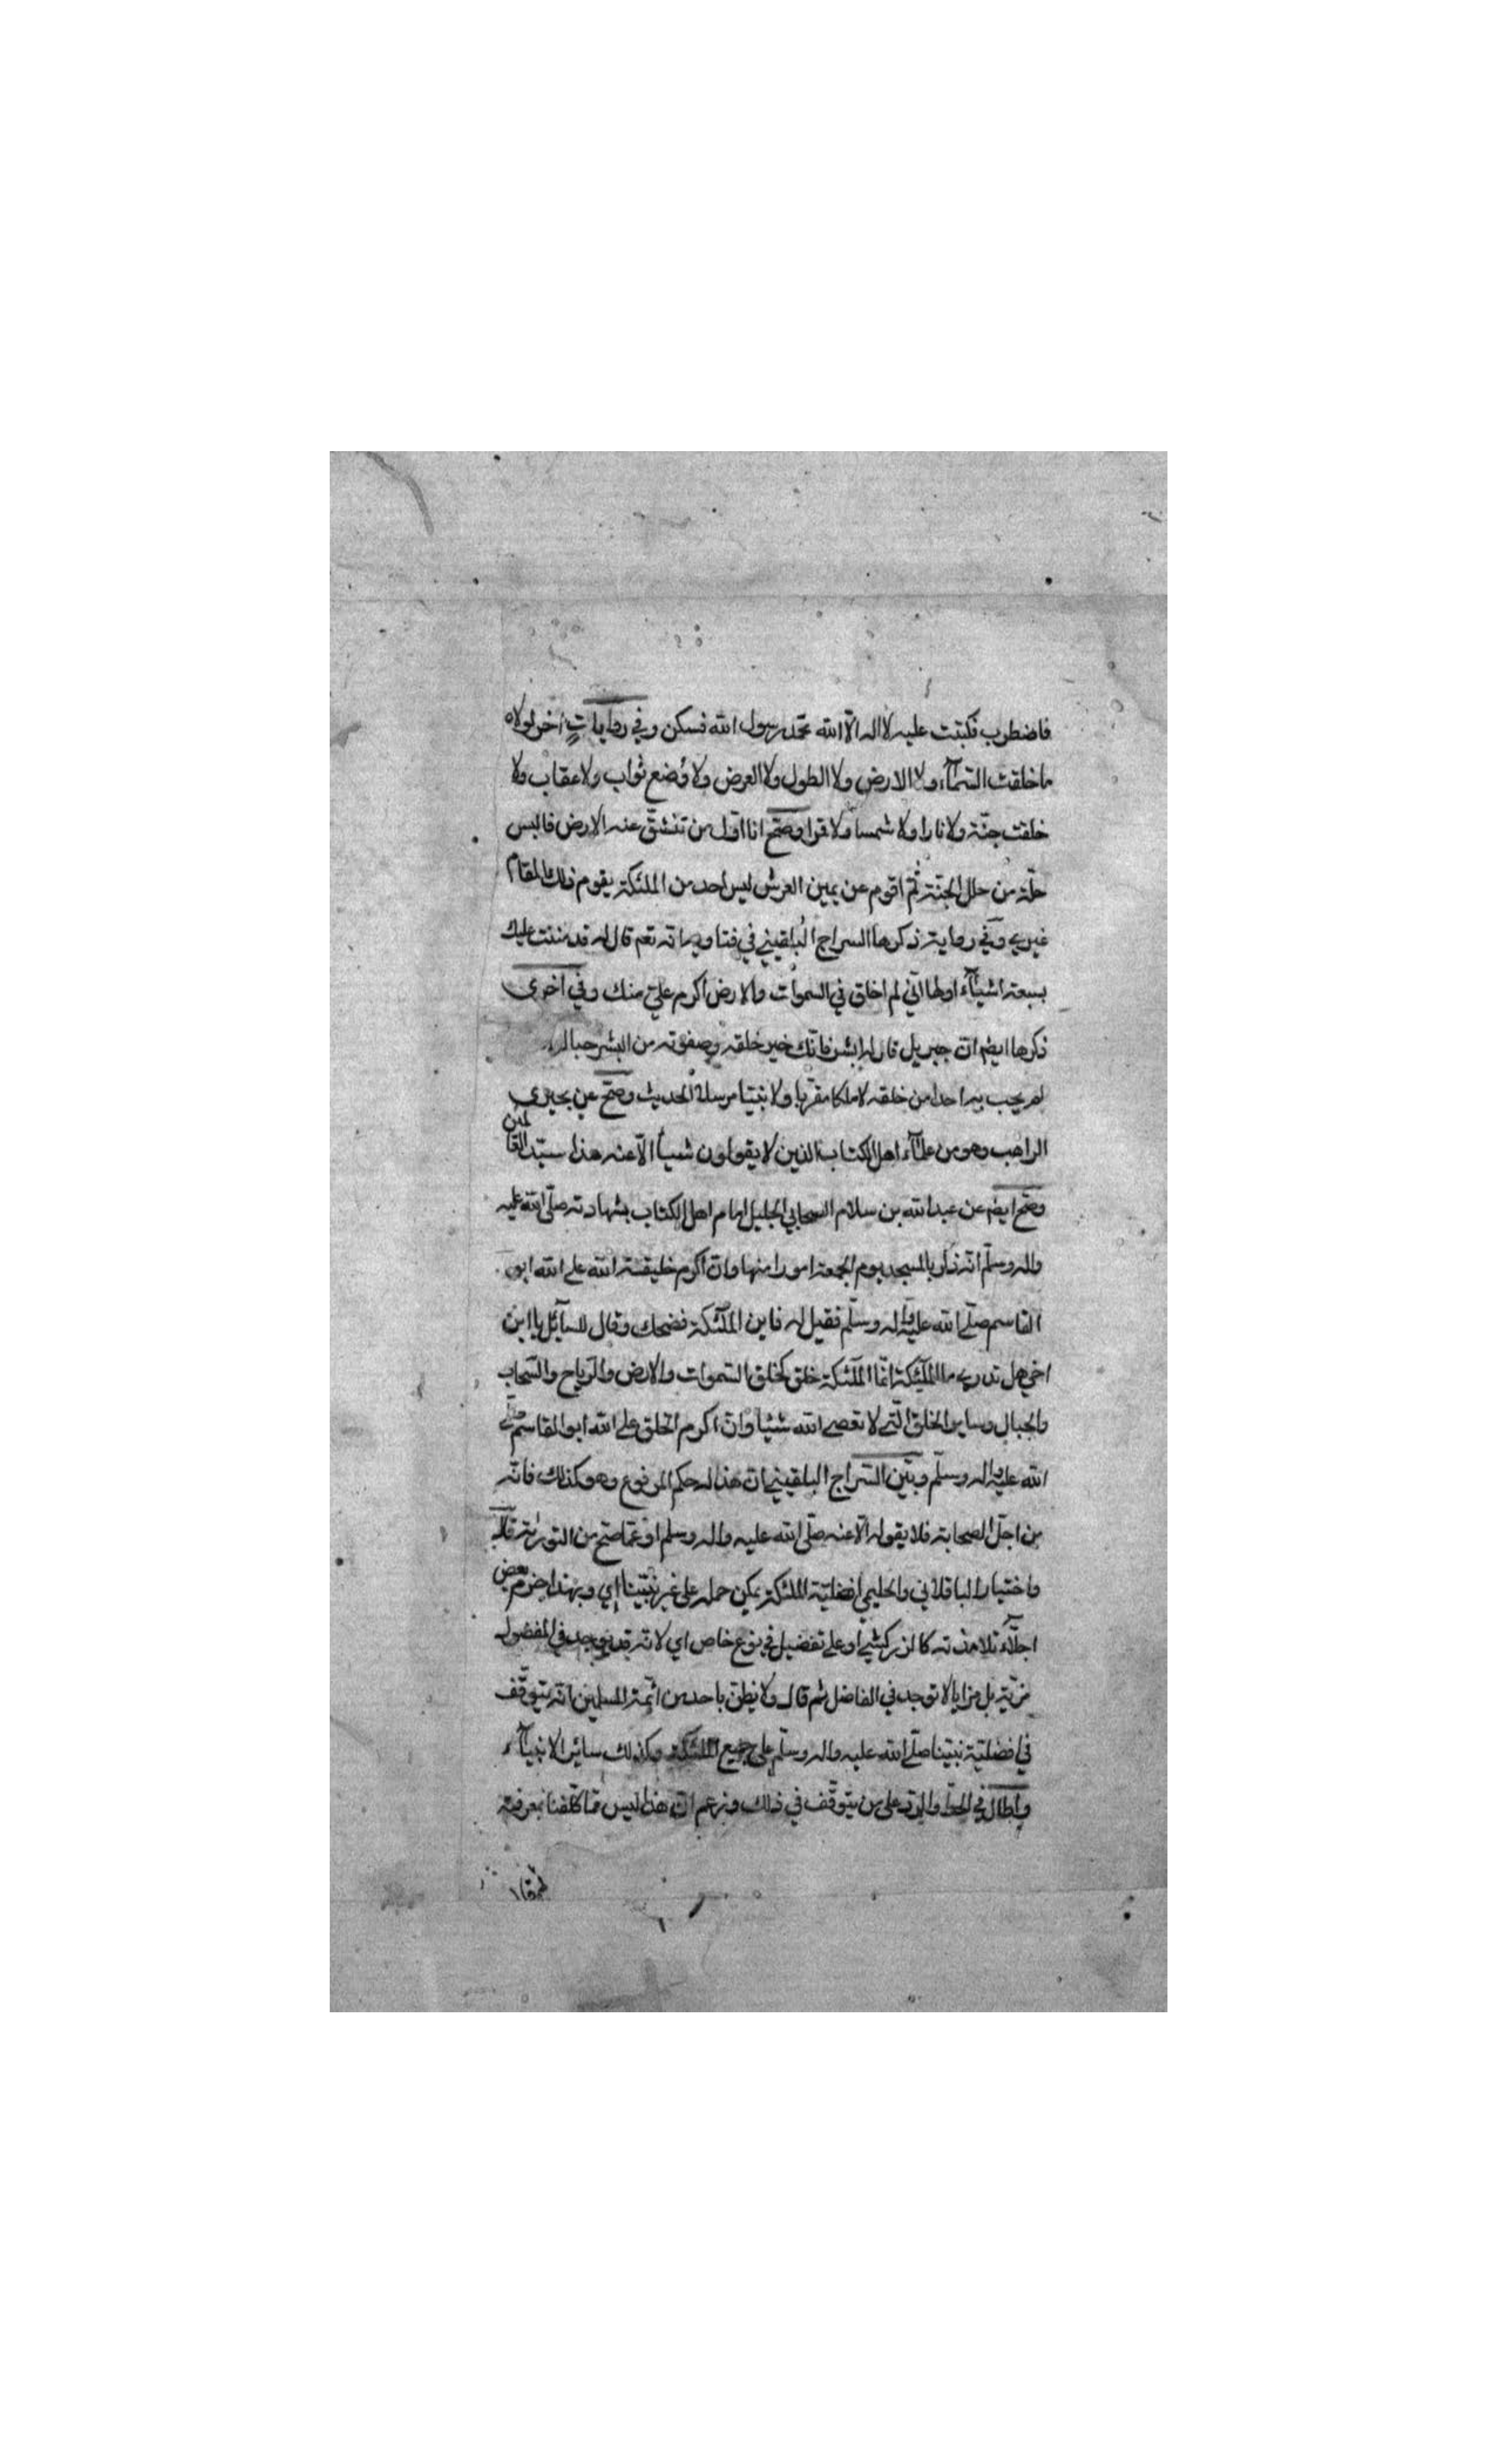 فاضطرب فكتبت عليه لا اله الّا الله محمّد رسول الله فسكن وفي روايات أخر لولاه
ما خلقت السّمآء ولا الارض ولا الطول ولا العرض ولا وُضع ثواب ولا عقاب ولا
خلقت جنّة ولا نارا ولا شمسا ولا قمرا وصحّ انا اوّل من تنشقّ عنه الارض فالبس
حلّة من حلل الجنّة ثمّ اقوم عن يمين العرش ليس احد من الملئكة يقوم ذلك المقام
غيري وفي رواية ذكرها السراج البُلقيني في فتاويه انه تعم قال له قد مننت عليك
بسبعة اشيآء اولها انّي لم اخلق في السموات والارض اكرم عليّ منك وفي اخرى
ذكرها ايضم انّ جبريل قال له ابشر فانّك خير خلقه وصفوته من البشر حباك
لم يحب به احدا من خلقه لا ملكا مقرّبا ولا نبيّا مرسلا الحديث وصحّ عن بحيرى
الراهب وهو من علمآء اهل الكتاب الذين لا يقولون شيأ الّا عنه هذا سيّد العالمين
وصحّ ايضم عن عبد الله بن سلام الصحابي الجليل امام اهل الكتاب بشهادته صلّى الله عليه
واله وسلّم انّه ذكر بالمسجد يوم الجمعة امورا منها وانّ اكرم خليقة الله على الله ابو
القاسم صلّى الله عليه واله وسلّم فقيل له فاين الملٓئكة فضحك وقال للسآئل يا ابن
اخي هل تدري ما الملٓئكة انّما الملٓئكة خلق كخلق السّموات والارض والرّياح والسّحاب
والجبال وساير الخلق الّتي لا تعصي الله شيئا وانّ اكرم الخلق على الله ابو القاسم صلّى
الله عليه واله وسلّم وبيّن السّراج البلقيني ان هذا له حكم المرفوع وهو كذلك فانّه
من اجلّ الصحابة فلا يقوله الّا عنه صلّى الله عليه واله وسلم او عمّا صحّ من التورية قال
واختيار الباقلاني والحليمي افضليّة الملئكة يمكن حمله على غير نبيّنا اي وبهذا جزم بعض
اجلّآء تلامذته كالزركشي او على تفضيل في نوع خاص اي لانه قد يوجد في المفضول
مزيّة بل مزايا لا توجد في الفاضل ثم قال ولا يظنّ باحد من ائمة المسلمين انّه يتوقّف
في افضليّة نبيّنا صلّى الله عليه واله وسلّم على جميع الملٓئكة وكذلك سائر الانبيآء
واطال في الحطّ والرّد على من يتوقّف في ذلك وزعم انّ هذا ليس ممّا كلّفنا بمعرفته